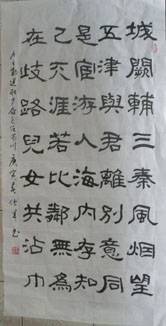 城闕輔三秦風烟望
五津與君離別意同
是宦游人海内存知
己天涯若比鄰無為
在歧路兒女共沾巾
杜少府之任蜀川 庚寅